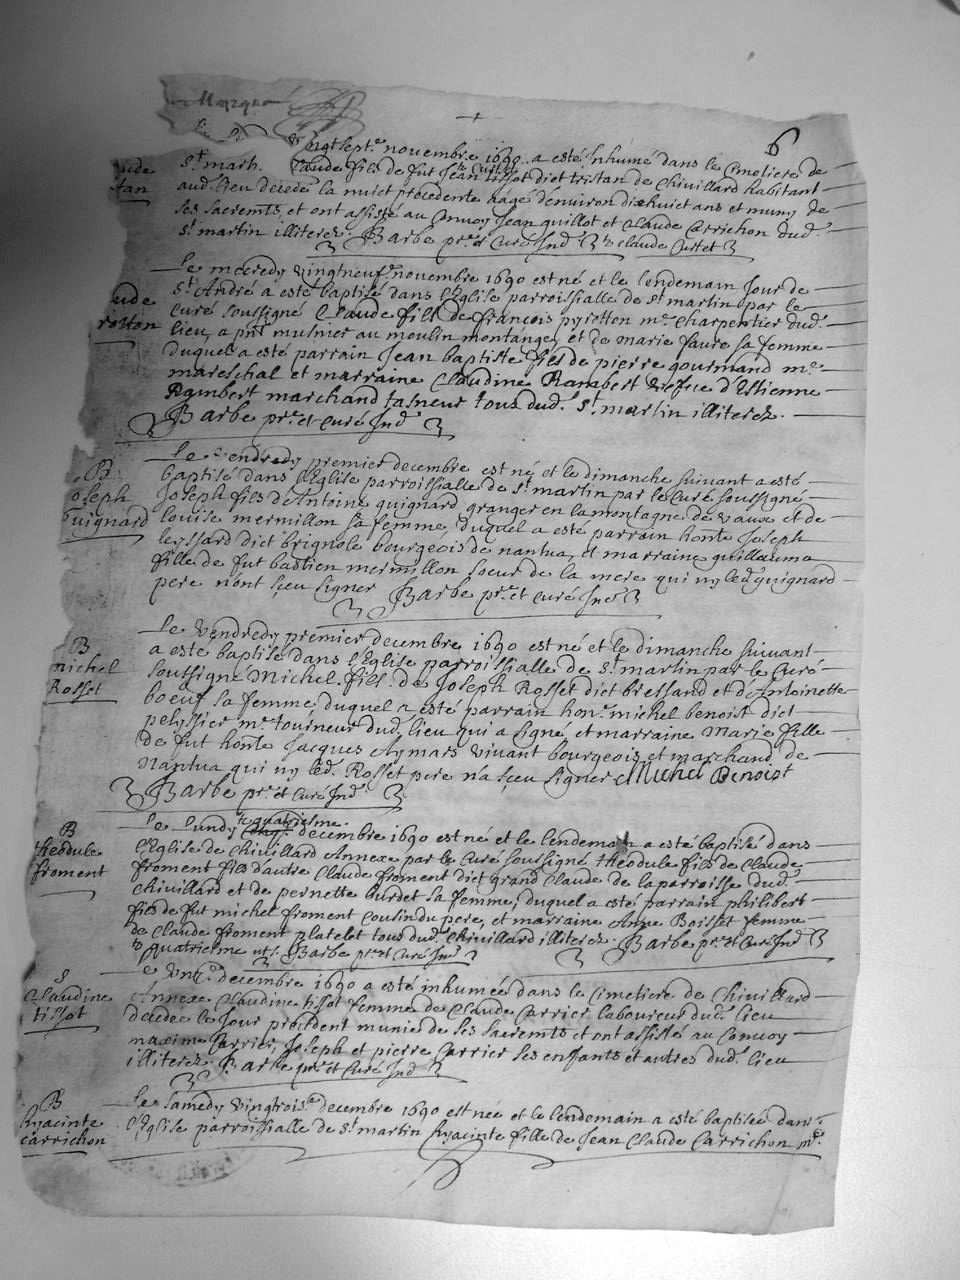 6
Le vingt sept.e novembre 1690 a esté Inhumé dans le Cimetiere de
St. mart. Claude fils de fut Jean tissot dict tristan de Chivillard habitant
aud. lieu decedé la nuict precedente aagé d'environ dixhuict ans et muny de
ses sacremts, et ont assisté au Convoy Jean guillot et Claude Carrichon dud.
St. martin illiterez. Barbe pr. et Curé Ind.
claude Curtet
ude
tan
Le mecredy vingtneuf.e novembre 1690 est né et le lendemain Jour de
St. André a esté baptisé dans l'Eglise parroissialle de St. martin par le
Curé soussigné Claude fils de françois pyrotton m.e Charpentier dud.
lieu, a pnt. musnier au moulin montange, et de marie faure sa femme
duquel a esté parrain Jean baptiste fils de pierre gourmand m.e
mareschal et marraine Claudine Rambert viefve d'Estienne
Rambert marchand tasneur tous dud. St. martin illiterez.
Barbe pr. et Curé Ind.
ude
rotton
Le vendredy premier decembre est né et le dimanche suivant a esté
baptisé dans l'Eglise parroissialle de St. martin par le Curé soussigné
Joseph fils d'Antoine guignard granger en la montagne de vaux et de
louise mermillon sa femme, duquel a esté parrain honte. Joseph
leyssard dict brignole bourgeois de nantua, et marraine guillauma
fille de fut bastien mermillon soeur de la mere qui ny led. guignard
pere n'ont sçeu signer Barbe pr. et Curé Ind.
B
oseph
Guignard
Le vendredy premier decembre 1690 est né et le dimanche suivant
a esté baptisé dans l'Eglise parroissialle de St. martin par le Curé
soussigné Michel fils de Joseph Rosset dict bressand et d'Antoinette
boeuf sa femme, duquel a esté parrain hon.e michel benoist dict
pelyssier m.e tourneur dud. lieu qui a signé et marraine Marie fille
de fut honte. Jacques Aymard vivant bourgeois et marchand de
Nantua qui ny led. Rosset pere n'a sçeu signer Michel Benoist
Barbe pr. et Curé Ind.
B
michel
Rosset
quatriesme
Le Lundy decembre 1690 est né et le lendemain a esté baptisé dans
l'Eglise de Chivillard Annexe par le Curé soussigné theodule fils de Claude
froment fils d'autre Claude froment dict grand Claude de la parroisse dud.
Chivillard et de pernette burdet sa femme, duquel a esté parrain philibert
fils de fut michel froment cousin du pere, et marraine Anne Boisset femme
de Claude froment platelet tous dud. Chivillard illiterez. Barbe pr. et Curé Ind.
quatriesme Barbe pr. et Curé Ind.
B
theodule
froment
Le decembre 1690 a esté inhumée dans le Cimetiere de Chivillard
Annexe Claudine tissot femme de Claude Carrier laboureur dud. lieu
decedée le Jour precedent munie de ses sacremts et ont assisté au Convoy
maxime Carrier, Joseph et pierre Carrier ses enfants et autres dud. lieu
illiterez Barbe pr. et Curé Ind.
S
Claudine
tissot
Le samedy vingtrois.e decembre 1690 est née et le lendemain a esté baptisée dans
l'Eglise parroissialle de St. martin hyacinte fille de Jean Claude Carrichon m.e
B
hyacinte
carrichon